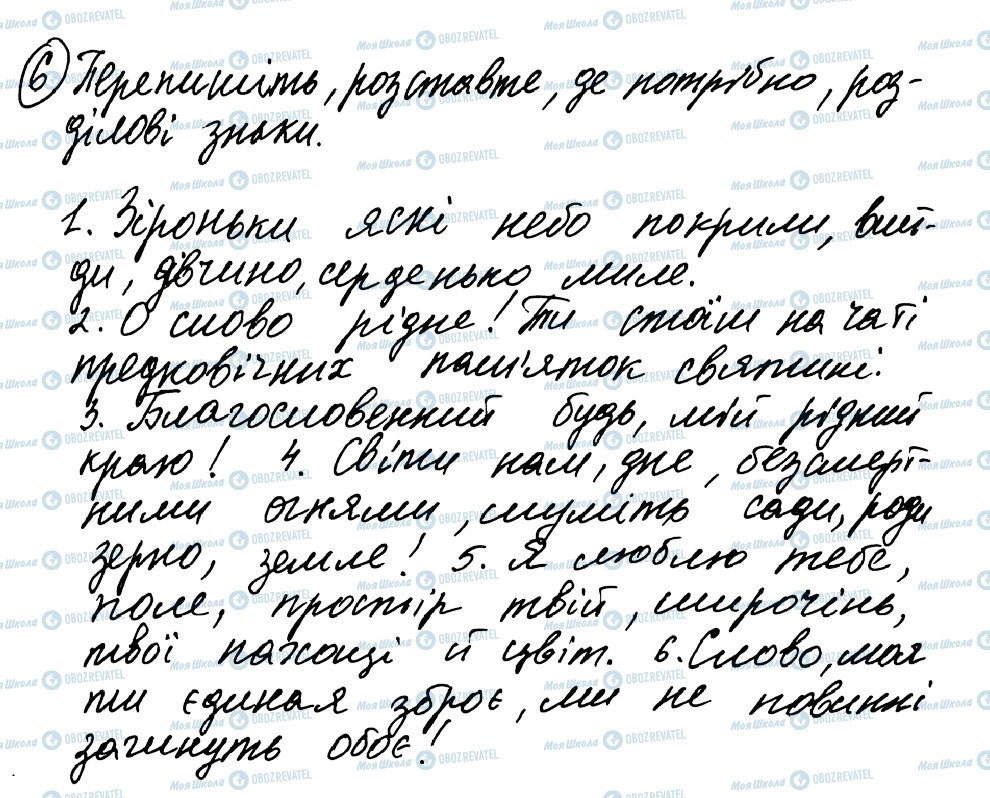 6 Перепишіть, розставте, де потрібно, роз-
ділові знаки.
1. Зіроньки ясні небо покрили, вий-
ди, дівчино, серденько миле.
2. О слово рідне! Ти стоїш на чаті
предковічних пам'яток святині.
3. Благословенний будь, мій рідний
краю! 4. Світи нам, дне, безсмерт-
ними огнями, шуміть сади, роди
зерно, земле! 5. Я люблю тебе,
поле, простір твій, широчінь,
твої пахощі й цвіт. 6. Слово, моя
ти єдиная зброє, ми не повинні
загинуть обоє!